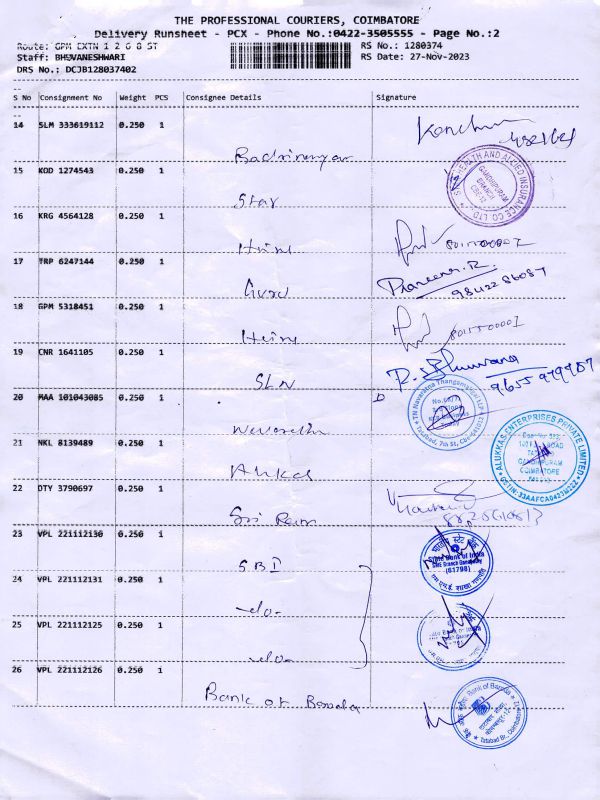 THE PROFESSIONAL COURIERS, COIMBATORE
Delivery Runsheet - PCX - Phone No.:0422-3505555 - Page No.:2
Route: GPM EXTN 1 2 6 8 ST
RS No.: 1280374
Staff: BHUVANESHWARI
RS Date: 27-Nov-2023
DRS No.: DCJB128037402
S No Consignment No Weight PCS Consignee Details Signature
14 SLM 333619112 0.250 1
15 KOD 1274543 0.250 1
Star
16 KRG 4564128 0.250 1
17 TRP 6247144 0.250 1
Guru
Praveena.R.
9842286087
18 GPM 5318451 0.250 1
19 CNR 1641105 0.250 1
SLN
R. Bhuvana
9655979987
20 MAA 101043085 0.250 1
TN Navarathna Thangamaligai LLP
Tatabad, 7th St, Cbe-641012
21 NKL 8139489 0.250 1
ALUKKAS ENTERPRISES PRIVATE LIMITED
GANDHIPURAM
COIMBATORE
22 DTY 3790697 0.250 1
Sri Ram
23 VPL 221112130 0.250 1
SBI
State Bank of India
(61798)
24 VPL 221112131 0.250 1
-do-
25 VPL 221112125 0.250 1
-do-
26 VPL 221112126 0.250 1
Bank of Baroda
Bank of Baroda
Tatabad Br., Coimbatore